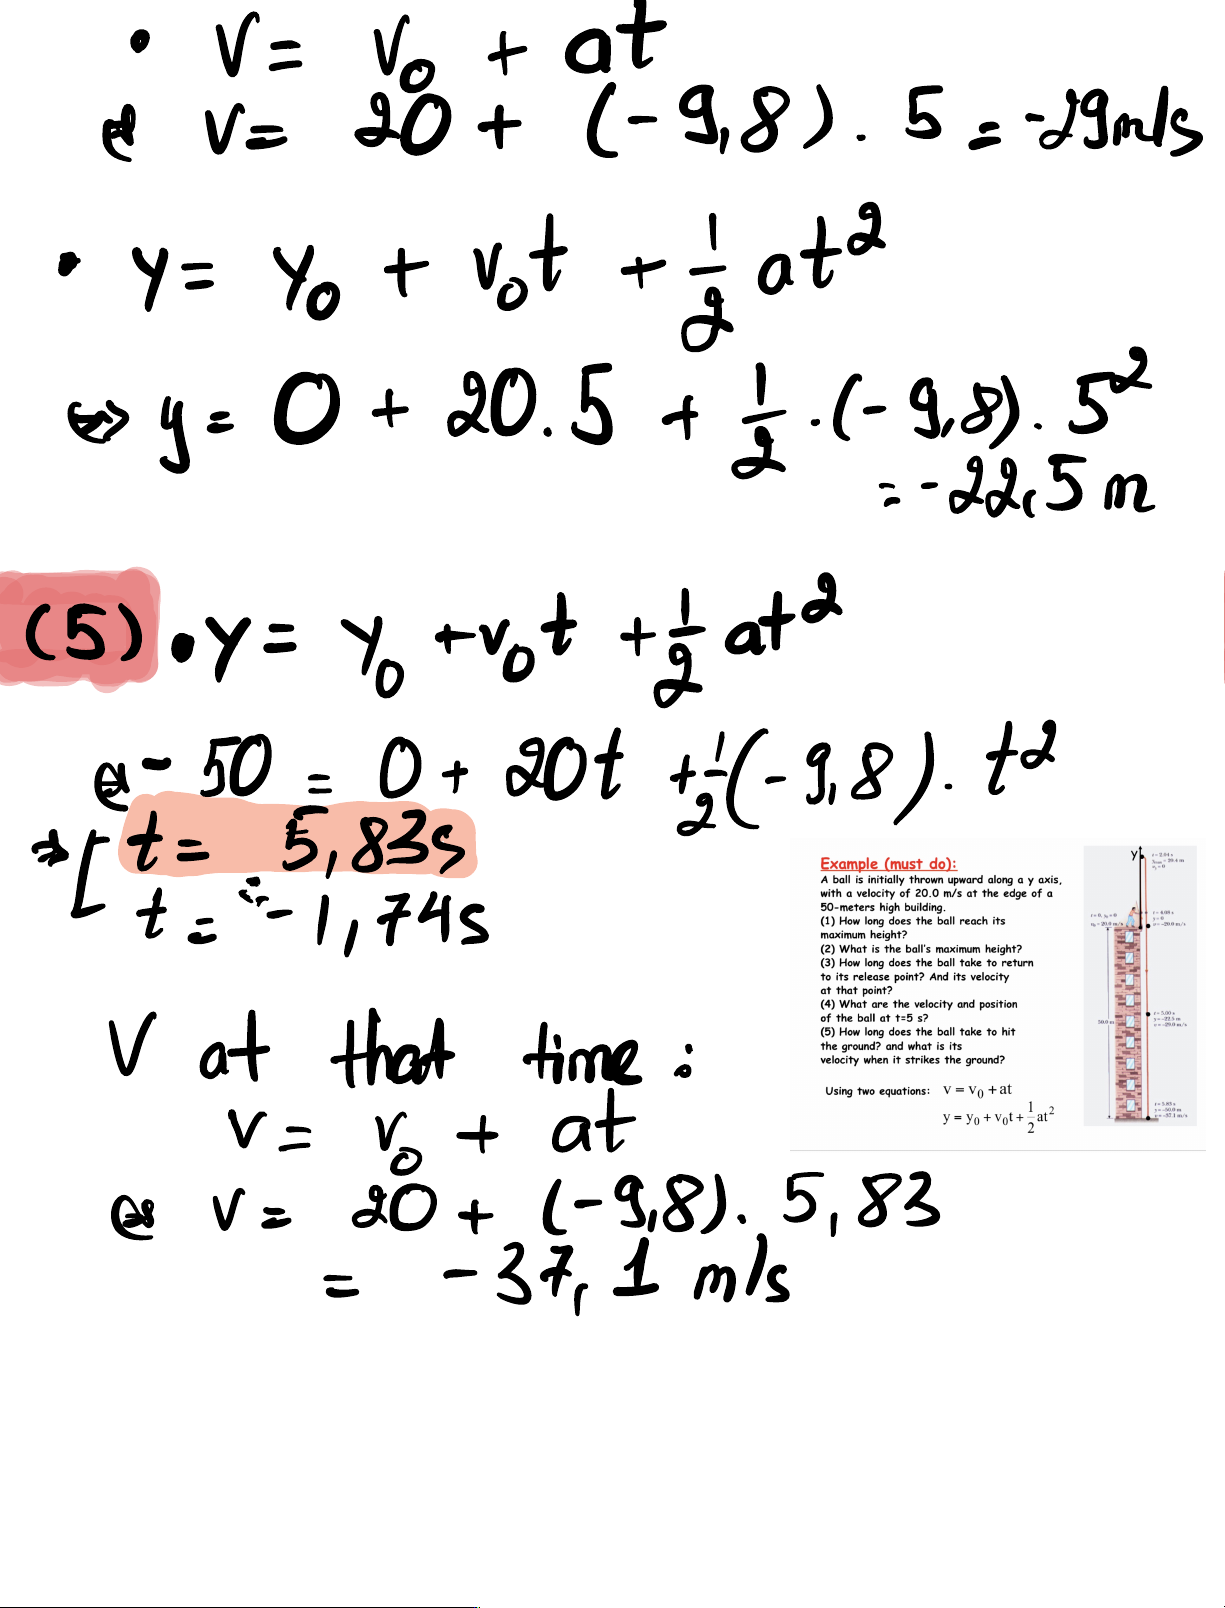 • V = V₀ + at
⇔ V = 20 + (-9,8) . 5 = -29m/s
• y = y₀ + v₀t + 1/2 at²
⇔ y = 0 + 20.5 + 1/2 .(-9,8). 5²
= -22,5 m
(5) • y = y₀ + v₀t + 1/2 at²
⇔ -50 = 0 + 20t + 1/2 (-9,8). t²
⇒ [ t = 5,83s
t = -1,74s
V at that time :
v = v₀ + at
⇔ v = 20 + (-9,8). 5,83
= -37,1 m/s
Example (must do):
A ball is initially thrown upward along a y axis,
with a velocity of 20.0 m/s at the edge of a
50-meters high building.
(1) How long does the ball reach its
maximum height?
(2) What is the ball's maximum height?
(3) How long does the ball take to return
to its release point? And its velocity
at that point?
(4) What are the velocity and position
of the ball at t=5 s?
(5) How long does the ball take to hit
the ground? and what is its
velocity when it strikes the ground?
Using two equations: v = v₀ + at
y = y₀ + v₀t + 1/2 at²
y
t = 2.04 s
t = 0, y₀ = 0
v₀ = 20.0 m/s
t = 4.08 s
y = 0
v = -20.0 m/s
50.0 m
t = 5.00 s
y = -22.5 m
v = -29.0 m/s
t = 5.83 s
y = -50.0 m
v = -37.1 m/s